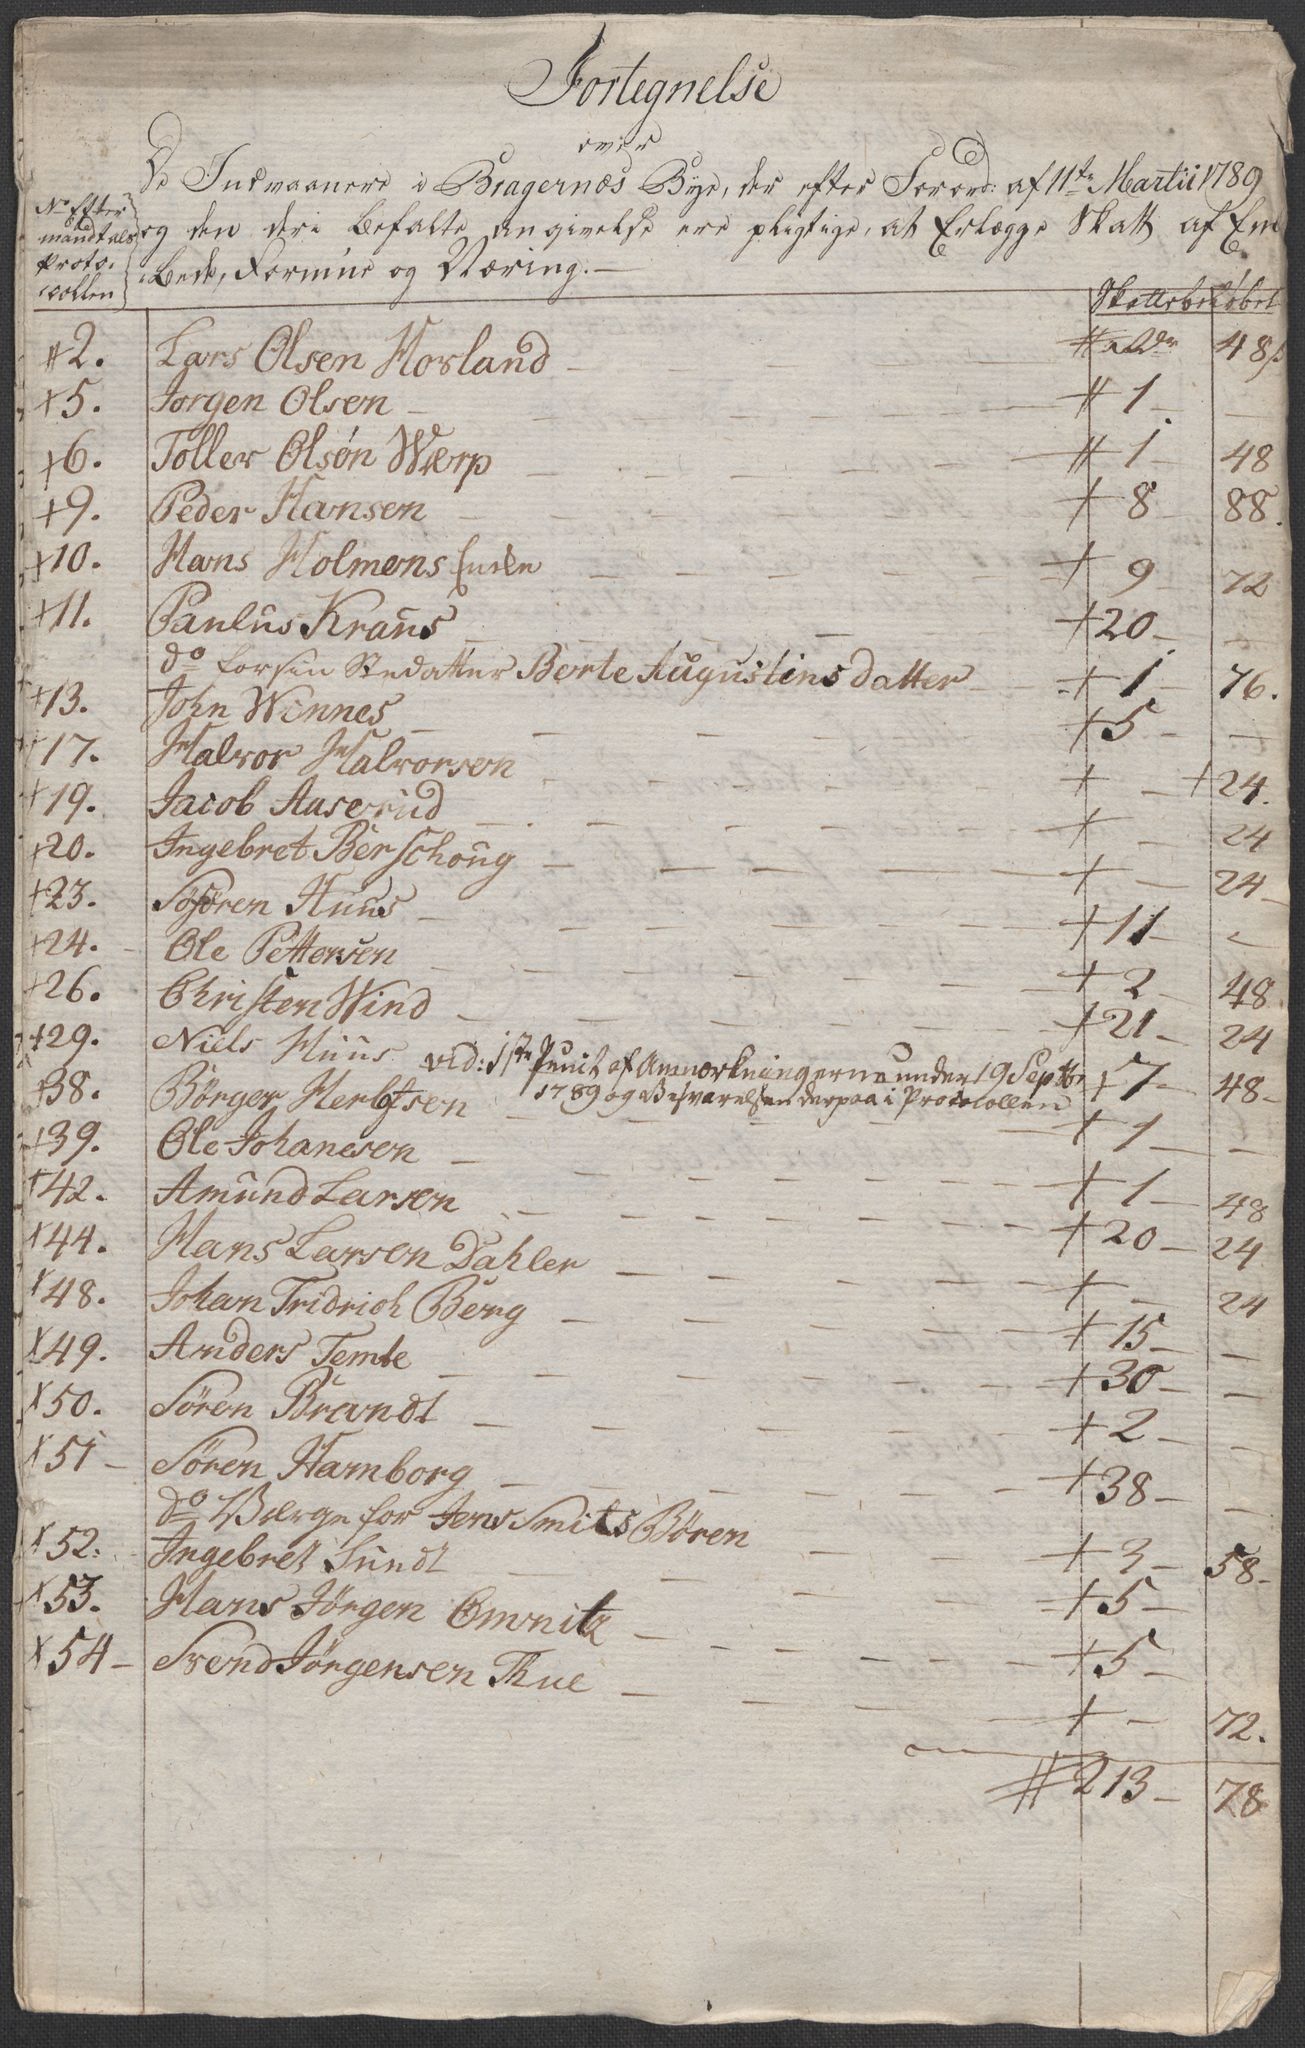 Fortegnelse
over
De Indvaanere i Bragernæs Bye, der efter Forord: af 11te Martii 1789
og den deri befalte angivelse ere pligtige, at Erlægge Skatt af Em
bede, Formue og Næring. —
No Efter
mandtals
Proto-
collen
Skattebeløbet
2. Lars Olsen Horland — 48 s
+5. Jørgen Olsen — 1 —
+6. Toller Olsøn Wærp — 1 — 48
+9. Peder Hansen — + 8 — 88.
+10. Hans Holmens Enke — + 9 — 72
+11. Paulus Kraus — + 20 —
do for sin Stedatter Berte Augustins datter — + 1 — 76.
+13. John Winnes — + 5 — —
+17. Halvor Halvorsen — + — + 24.
+19. Jacob Aaserud — + — 24
+20. Ingebret Berschoug — + — 24 —
+23. Søren Huus — + 11 — —
+24. Ole Pettersen — + 2 — 48
+26. Christen Wind — + 21 — 24
+29. Niels Huus vid: 1ste Punct af Anmærkningerne under 19 Septbr + 7 — 48 —
1789 og Besvarelsen derpaa i Protocollen
+38. Börger Herlofsen — + 1 — —
+39. Ole Johanesen — + 1 — 48
+42. Amund Larsen — + 20 — 24
+44. Hans Larsen Dahler — + — 24
+48. Johan Fridrich Berg — + 15 — —
+49. Anders Temte — + 30 — —
+50. Søren Brandt — + 2 — —
+51 — Søren Hamborg — + 38 — —
do Værge for Jens Smits Børen — + 3 — 58 —
+52. Ingebret Sundt — + 5 —
+53. Hans Jørgen Omnitz — + 5 —
+54 — Svend Jørgensen Thue — + — 72.
# 213 — 78